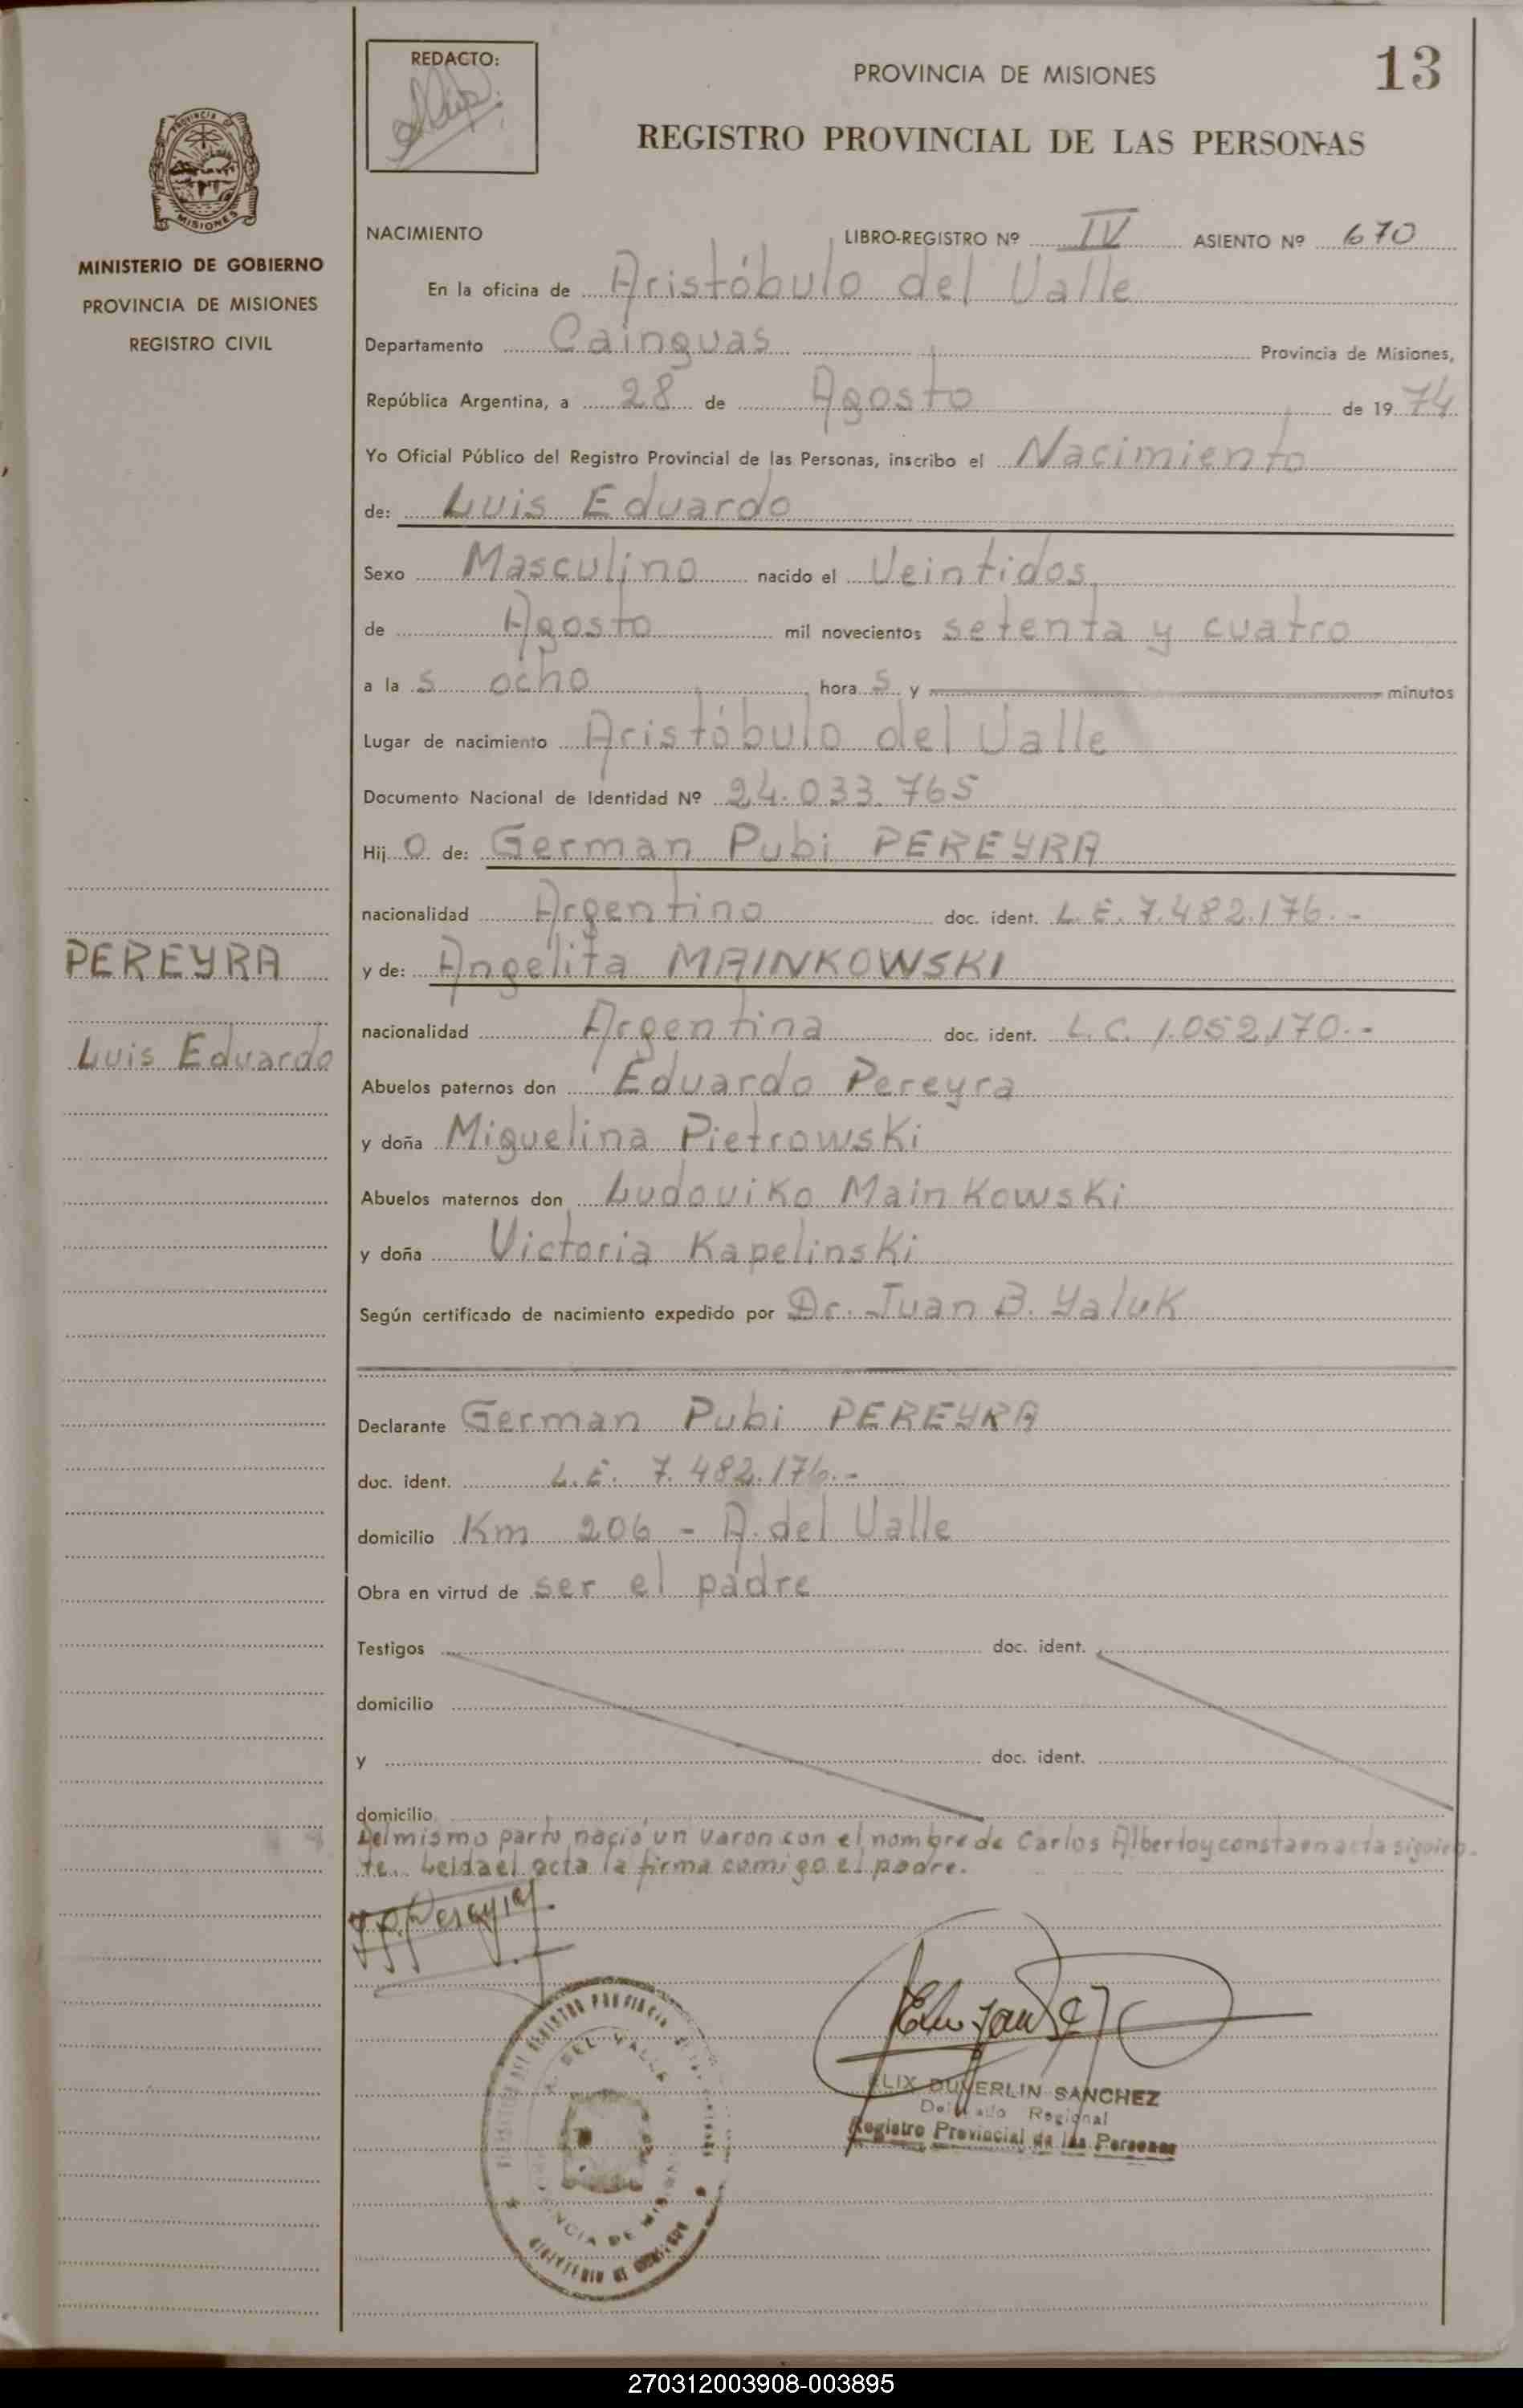 REDACTO:
PROVINCIA DE MISIONES
13
REGISTRO PROVINCIAL DE LAS PERSONAS
PROVINCIA DE
MISIONES
MINISTERIO DE GOBIERNO
PROVINCIA DE MISIONES
REGISTRO CIVIL
NACIMIENTO LIBRO-REGISTRO Nº IV ASIENTO Nº 670
En la oficina de Aristóbulo del Valle
Departamento Cainguas Provincia de Misiones,
República Argentina, a 28 de Agosto de 19 74
Yo Oficial Público del Registro Provincial de las Personas, inscribo el Nacimiento
de: Luis Eduardo
Sexo Masculino nacido el Veintidos
de Agosto mil novecientos setenta y cuatro
a la s ocho hora s y minutos
Lugar de nacimiento Aristóbulo del Valle
Documento Nacional de Identidad Nº 24.033.765
Hij o de: German Pubi PEREYRA
nacionalidad Argentino doc. ident. L.E. 7.482.176.-
PEREYRA
y de: Angelita MAINKOWSKI
nacionalidad Argentina doc. ident. L.C. 1.052.170.-
Luis Eduardo
Abuelos paternos don Eduardo Pereyra
y doña Miguelina Pietrowski
Abuelos maternos don Ludoviko Mainkowski
y doña Victoria Kapelinski
Según certificado de nacimiento expedido por Dr. Juan B. Yaluk
Declarante German Pubi PEREYRA
doc. ident. L.E. 7.482.176.-
domicilio Km 206 - A. del Valle
Obra en virtud de ser el padre
Testigos doc. ident.
domicilio
y doc. ident.
domicilio
Del mismo parto nació un varon con el nombre de Carlos Alberto y consta en acta siguien-
te. Leida el acta la firma comigo el padre.
Pereyra
ELIX DUVERLIN SANCHEZ
Delegado Regional
Registro Provincial de las Personas
DEL VALLE
270312003908-003895